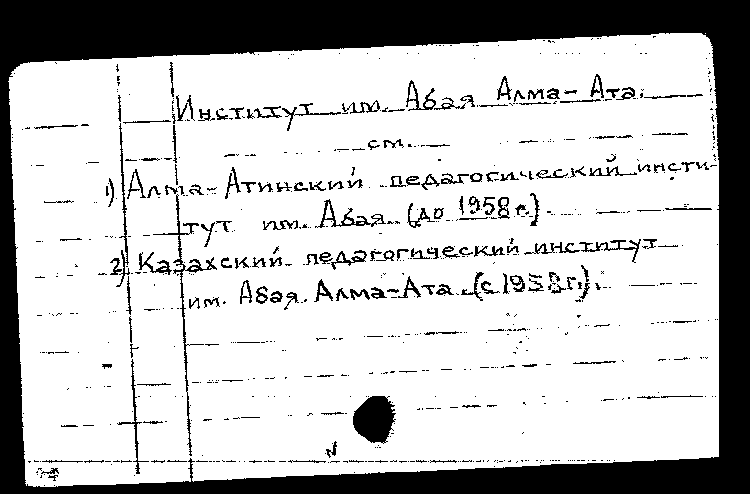 Институт им. Абая Алма-Ата.
см.
1) Алма-Атинский педагогический инсти-
тут им. Абая. (до 1958 г.).
2) Казахский педагогический институт
им. Абая. Алма-Ата. (с 1958 г.).